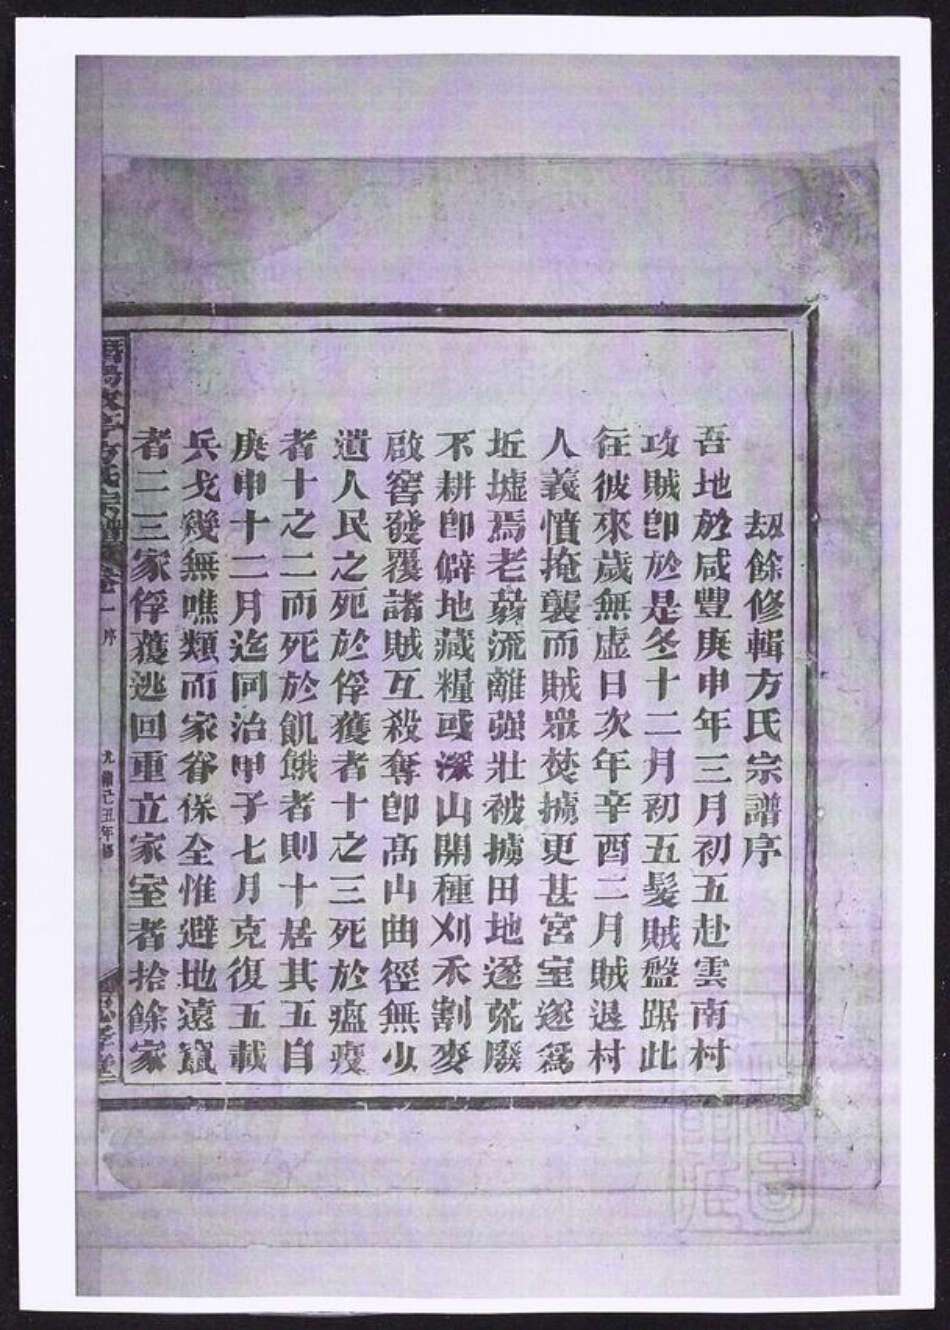 劫餘修輯方氏宗譜序
吾地於咸豐庚申年三月初五赴雲南村
攻賊卽於是冬十二月初五髮賊盤踞此
往彼來歲無虛日次年辛酉二月賊退村
人義憤掩襲而賊眾焚擄更甚宮室遂爲
坵墟焉老弱流離强壯被擄田地遂荒廢
不耕卽僻地藏糧或深山開種刈禾割麥
啟窖發覆諸賊互殺奪卽高山曲徑無少
遺人民之死於俘獲者十之三死於瘟疫
者十之二而死於飢餓者則十居其五自
庚申十二月迄同治甲子七月克復五載
兵戈幾無噍類而家眷保全惟避地遠竄
者二三家俘獲逃回重立家室者拾餘家
方氏宗譜 卷一 序 光緒己丑年修